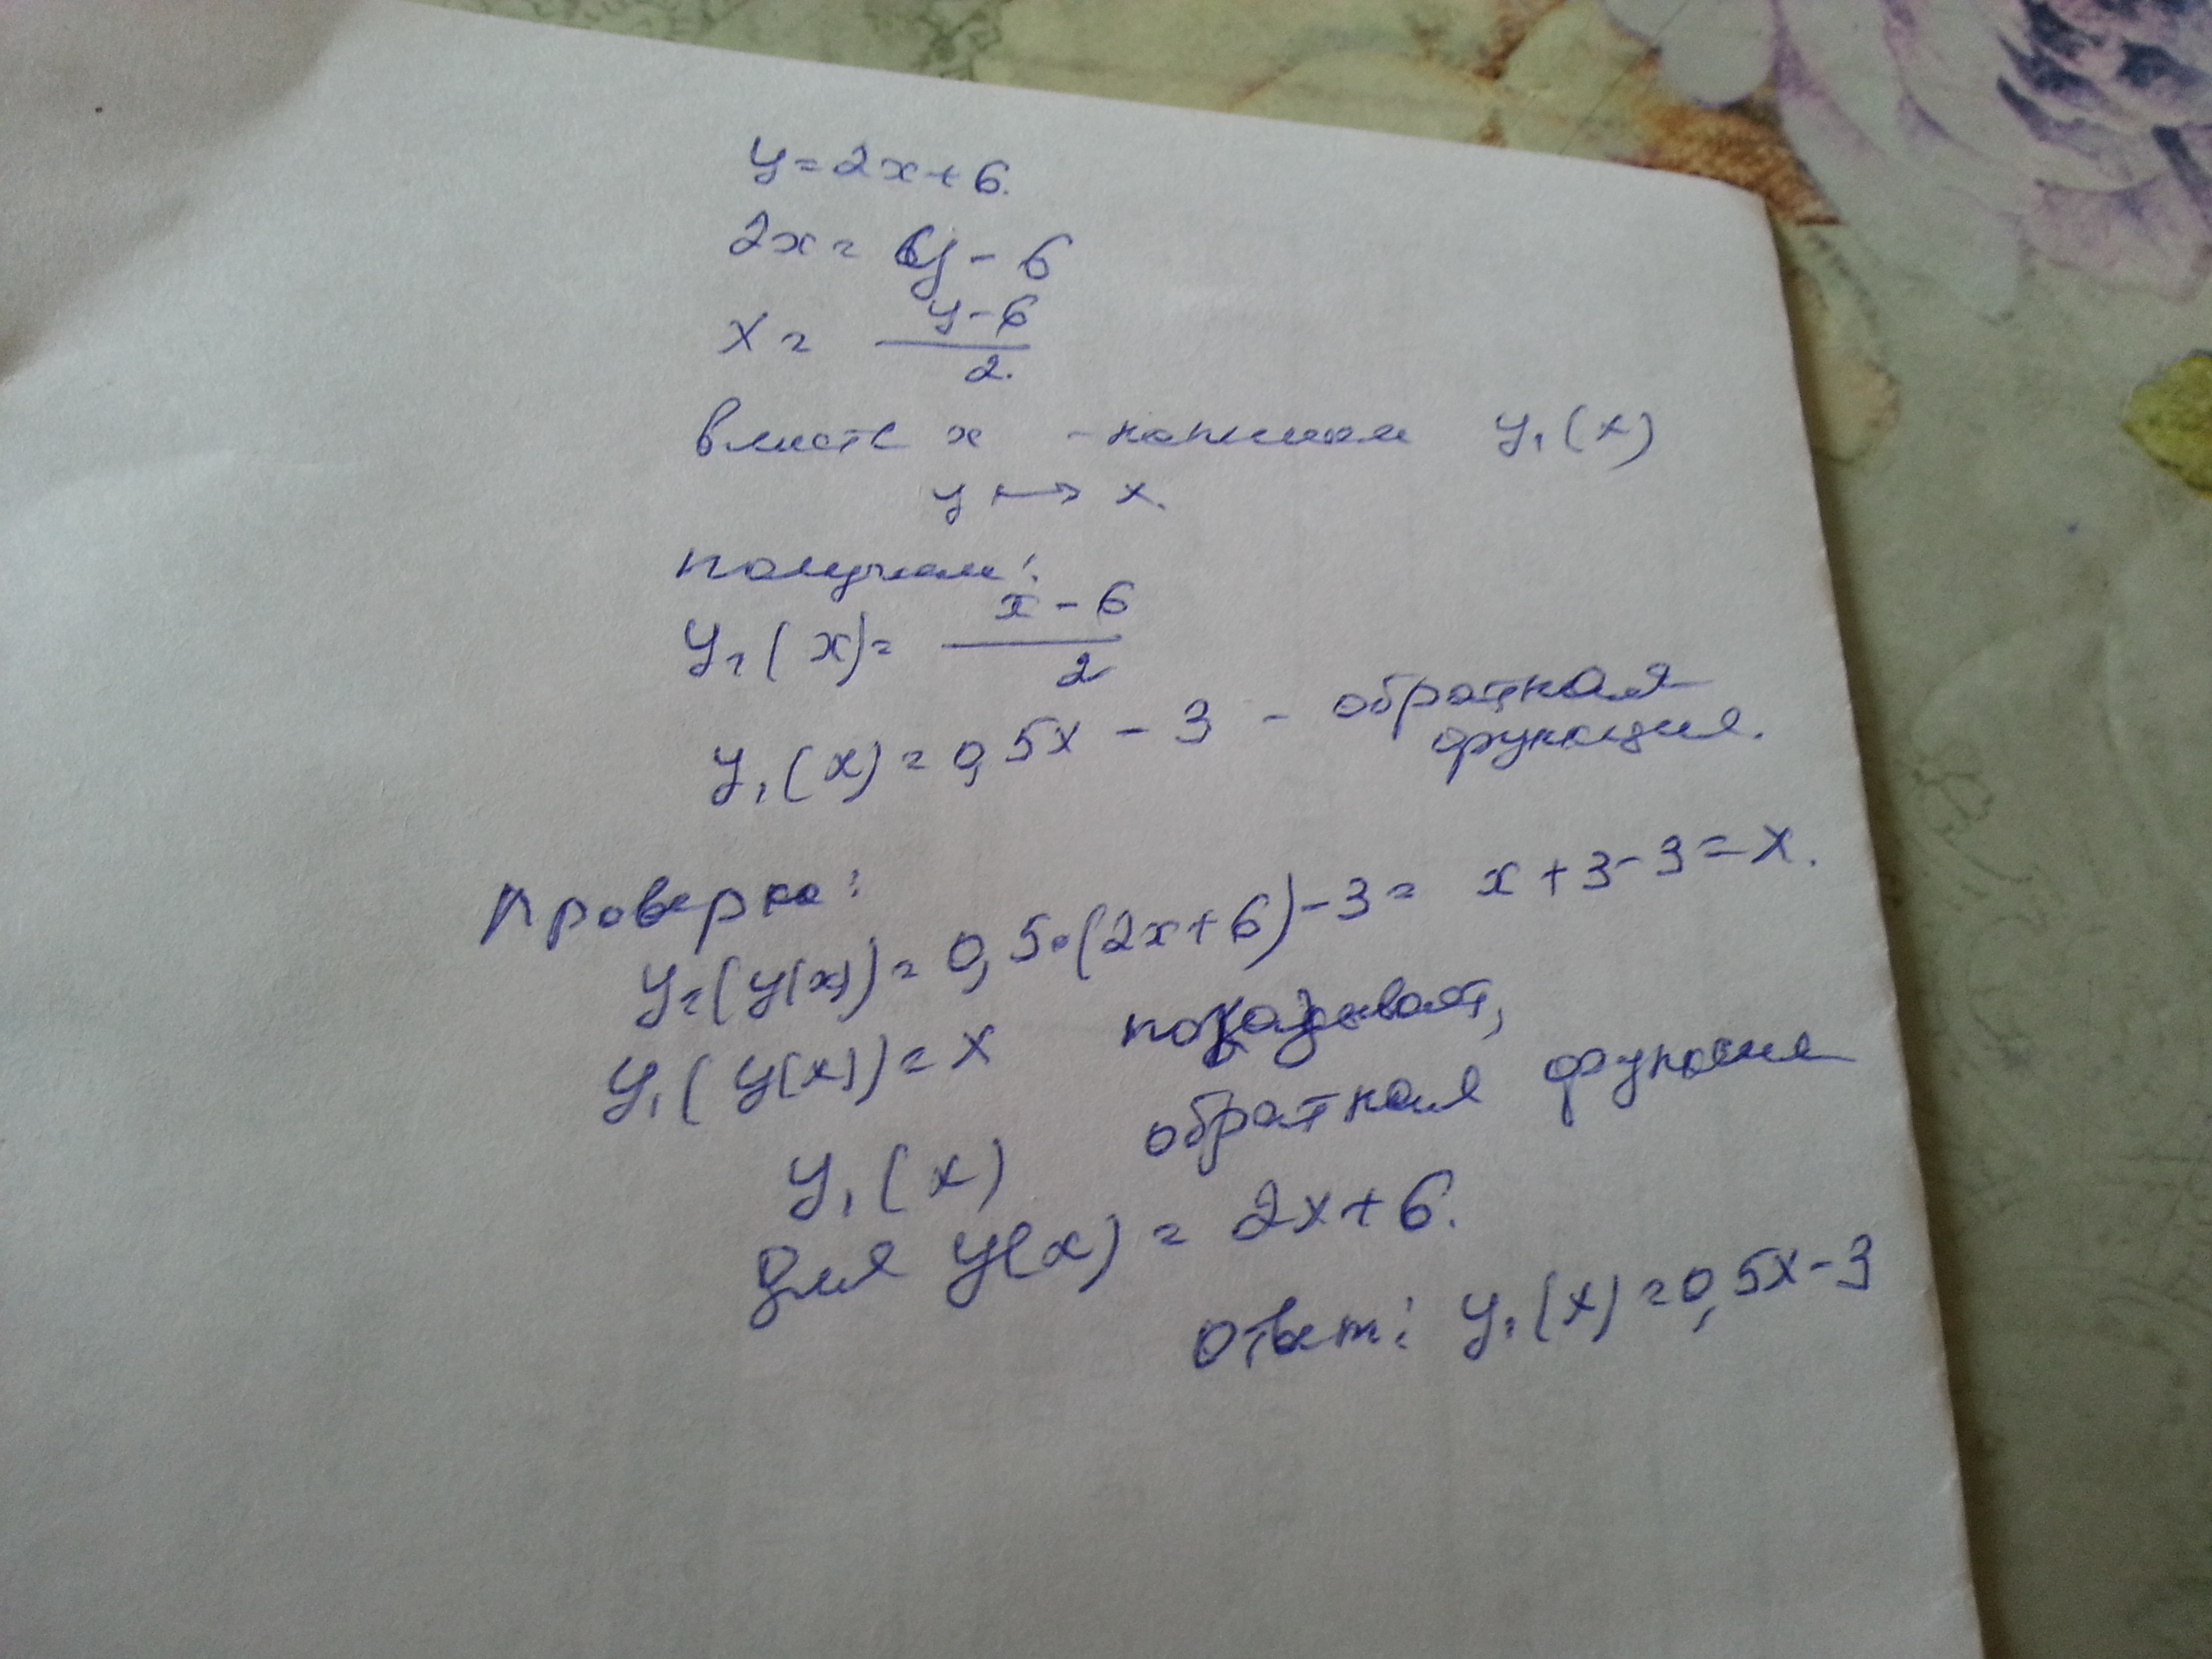 y=2x+6.
2x= y-6
x= y-6/2.
вместо x - напишем y₁(x)
y ↦ x.
получаем:
y₁(x)= x-6/2
y₁(x)=0,5x-3 - обратная
функция.
Проверка:
y₁(y(x))=0,5·(2x+6)-3= x+3-3=x.
y₁(y(x))=x показывает,
y₁(x) обратная функция
для y(x)= 2x+6.
Ответ: y₁(x)=0,5x-3